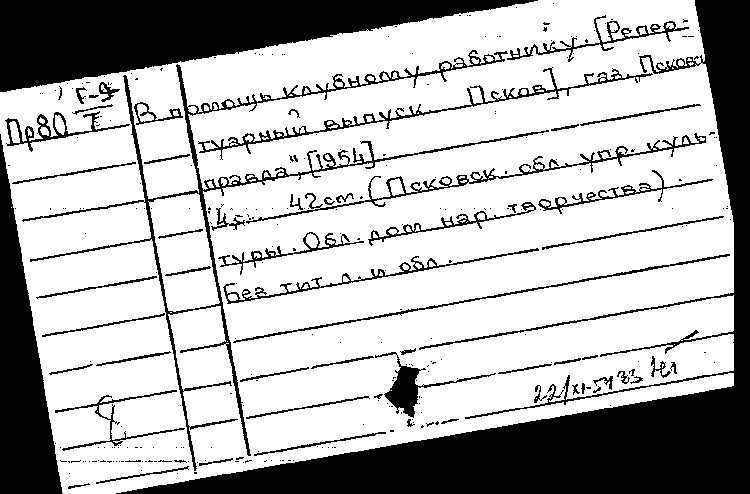 Пр80 Г-9/Т
В помощь клубному работнику. [Репер-
туарный выпуск. Псков], газ. „Псковск.
правда“, [1954].
4 с. 42 см. (Псковск. обл. упр. куль-
туры. Обл. дом нар. творчества).
Без тит. л. и обл.
8
22/XI-54